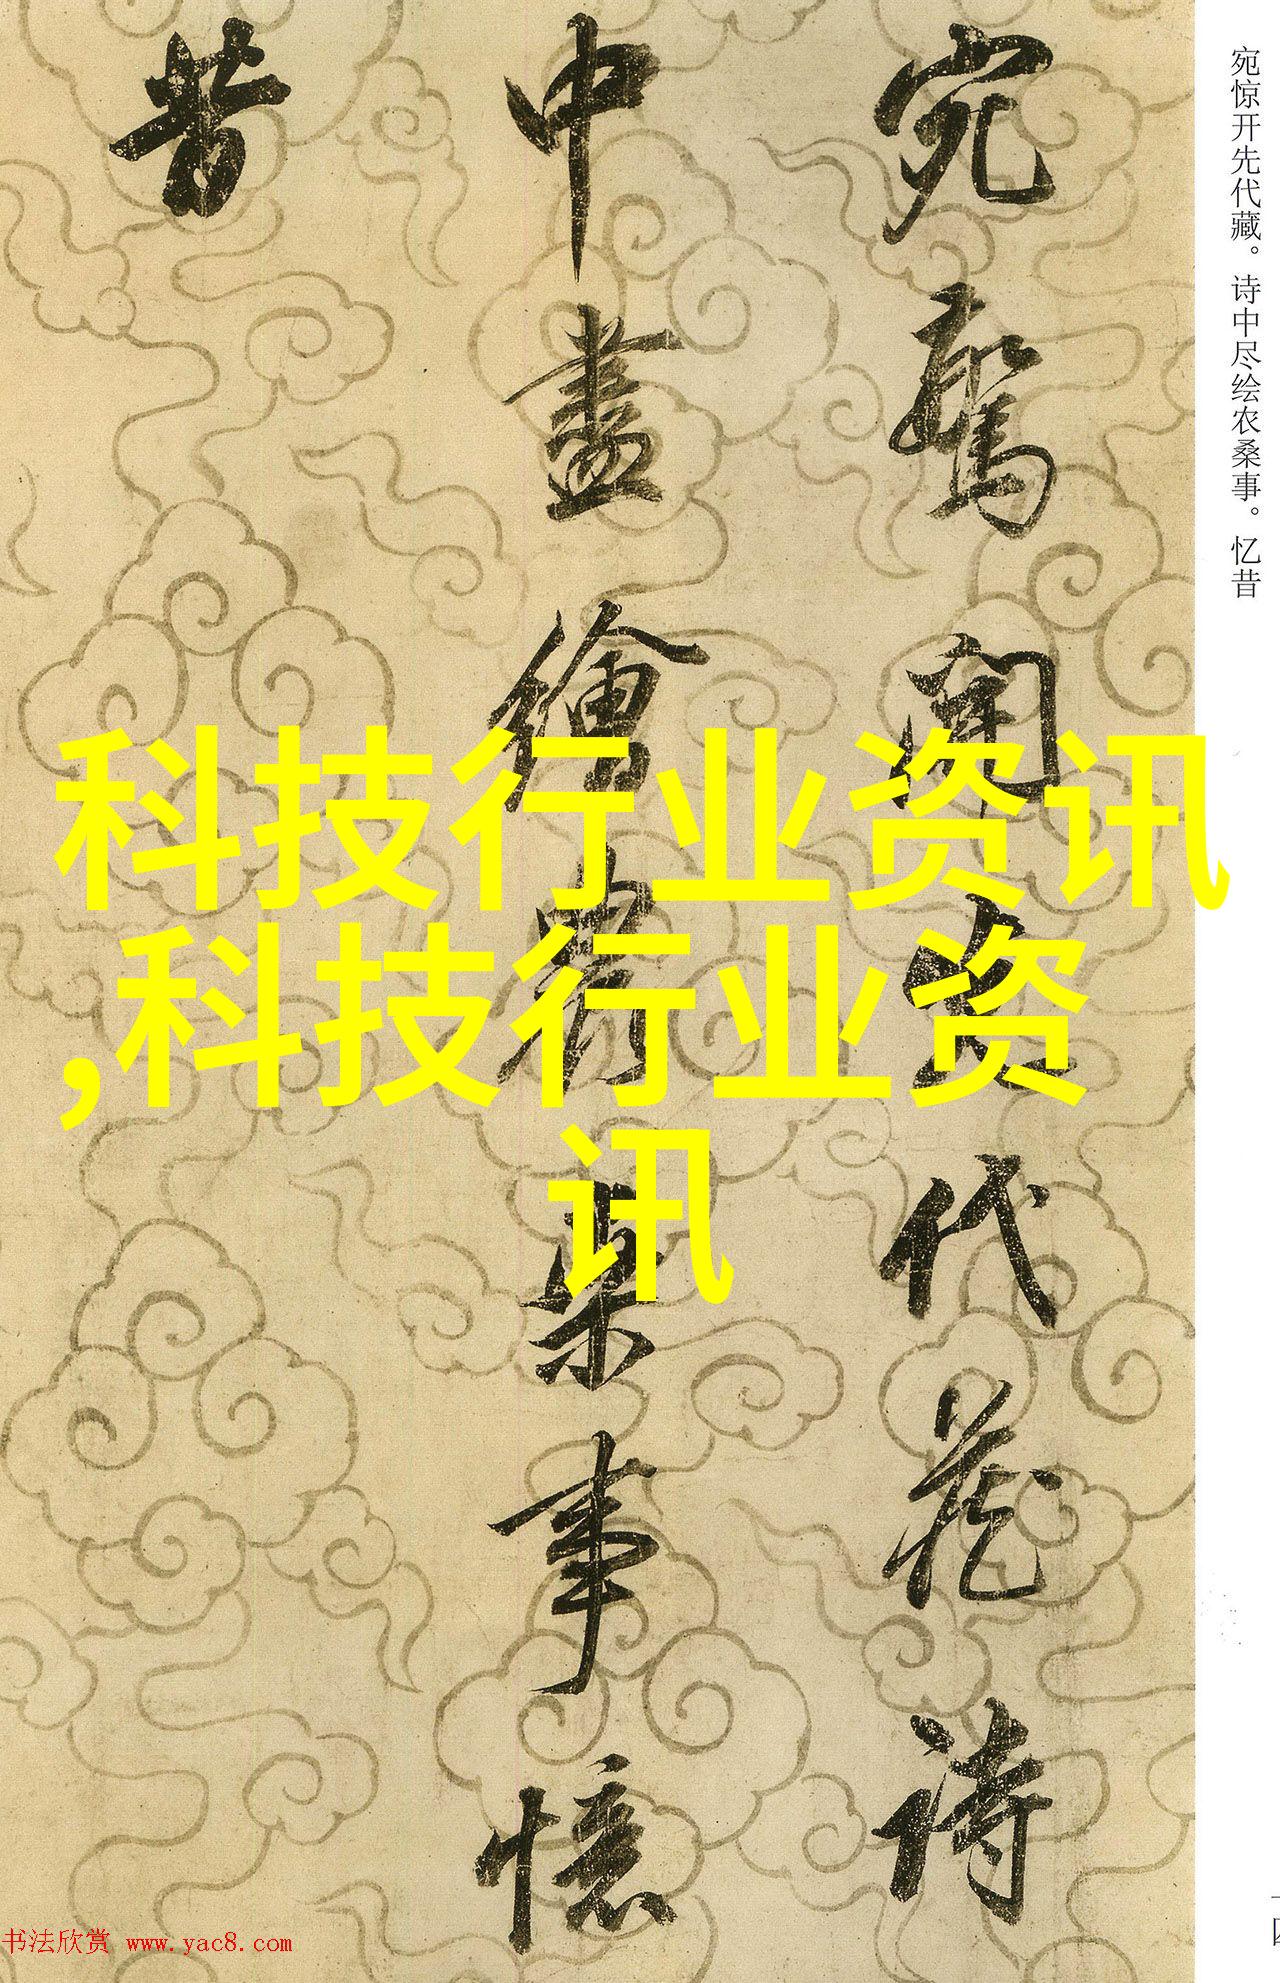 宛驚開先代藏詩
中盡繪農桑事憶
昔
宛惊开先代藏。诗中尽绘农桑事。忆昔
科技行业资讯
,科技行业资
讯
书法欣赏 www.yac8.com